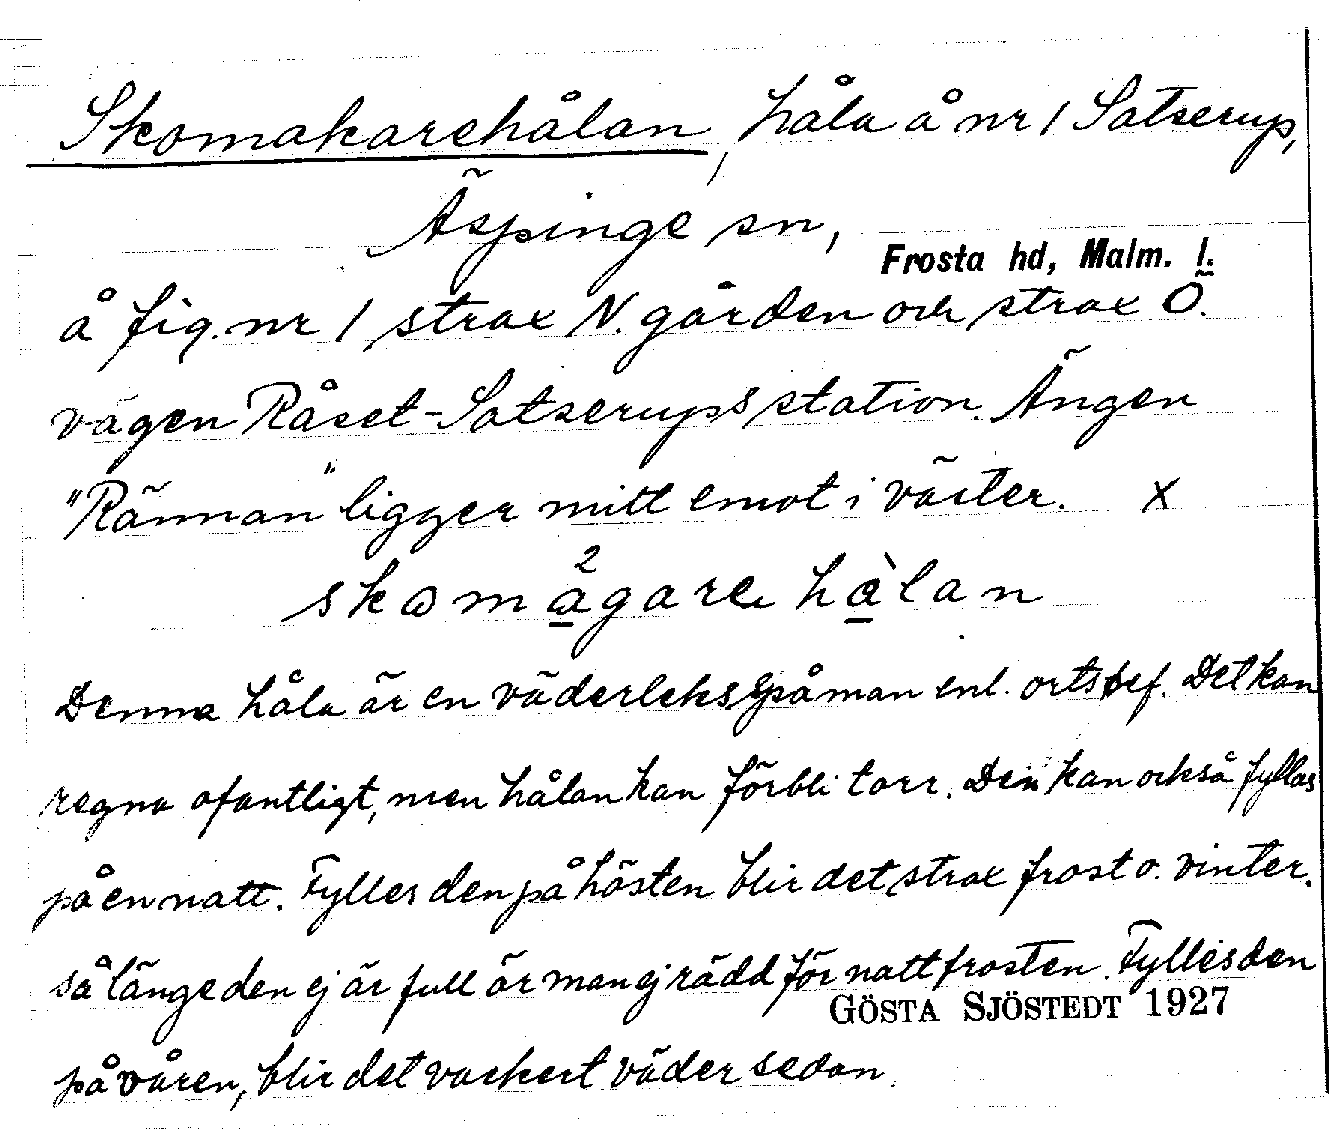 Skomakarehålan, håla å nr 1 Satserup,
Äspinge sn,
Frosta hd, Malm. l.
å fig. nr 1 strax N. gården och strax Ö.
vägen Råset-Satserups station. Ängen
"Rännan" ligger mitt emot i väster. X
2
skomagare hàlan
Denna håla är en väderleksspåman enl. ortsbef. Det kan
regna ofantligt, men hålan kan förbli torr. Den kan också fyllas
på en natt. Fylles den på hösten blir det strax frost o. vinter.
så länge den ej är full är man ej rädd för nattfrosten. Fylles den
GÖSTA SJÖSTEDT 1927
på våren, blir det vackert väder sedan.